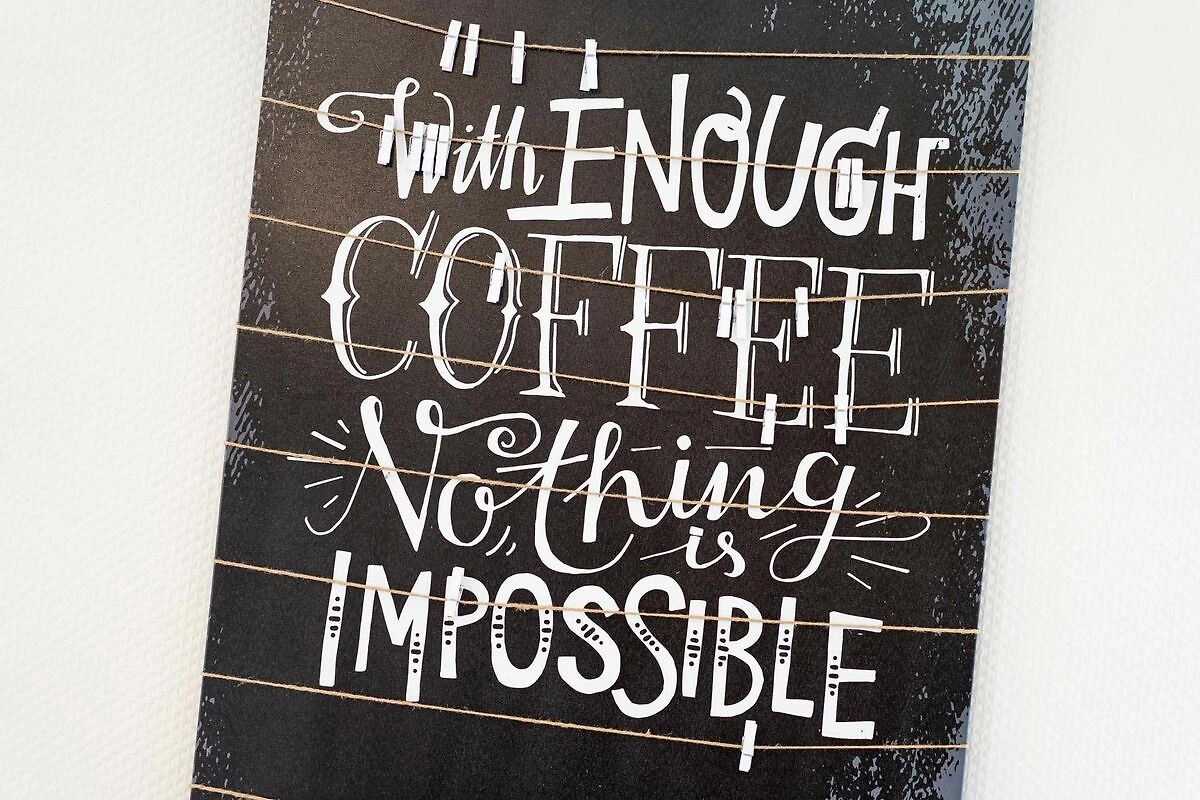 With ENOUGH
COFFEE
Nothing
is
IMPOSSIBLE